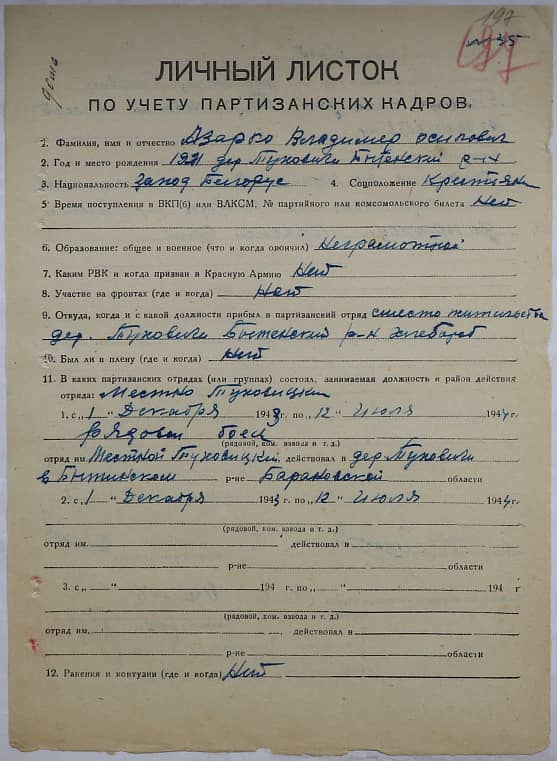 197
135
дета
ЛИЧНЫЙ ЛИСТОК
ПО УЧЕТУ ПАРТИЗАНСКИХ КАДРОВ.
1. Фамилия, имя и отчество Азарко Владимер осипович
2. Год и место рождения 1921 дер. Туховичи Бытенский р-н
3. Национальность Запод Белорус 4. Соцположение Крестянин
5 Время поступления в ВКП(б) или ВЛКСМ, № партийного или комсомольского билета Нет
6. Образование: общее и военное (что и когда окончил) Неграмотной
7. Каким РВК и когда призван в Красную Армию Нет
8. Участие на фронтах (где и когда) Нет
9. Откуда, когда и с какой должности прибыл в партизанский отряд сместо жительства
дер. Туховичи Бытенский р-н хлебороб
10. Был ли в плену (где и когда) Нет
11. В каких партизанских отрядах (или группах) состоял, занимаемая должность и район действия
отряда: Местно Туховицкий
1. с „1" Декабря 1943 г. по „12" Июля 1944 г.
Рядовой боец
(рядовой, ком. взвода и т. д.)
отряд им. Местной Туховицкий действовал в дер. Туховичи
в Бытинском р-не Барановской области
2. с „1" Декабря 1943 г. по „12" Июля 1944 г.
(рядовой, ком. взвода и т. д.)
отряд им. действовал в
р-не области
3. с „ " 194 г. по „ " 194 г
(рядовой, ком. взвода и т. д.)
отряд им. действовал в
р-не области
12. Ранения и контузии (где и когда) Нет